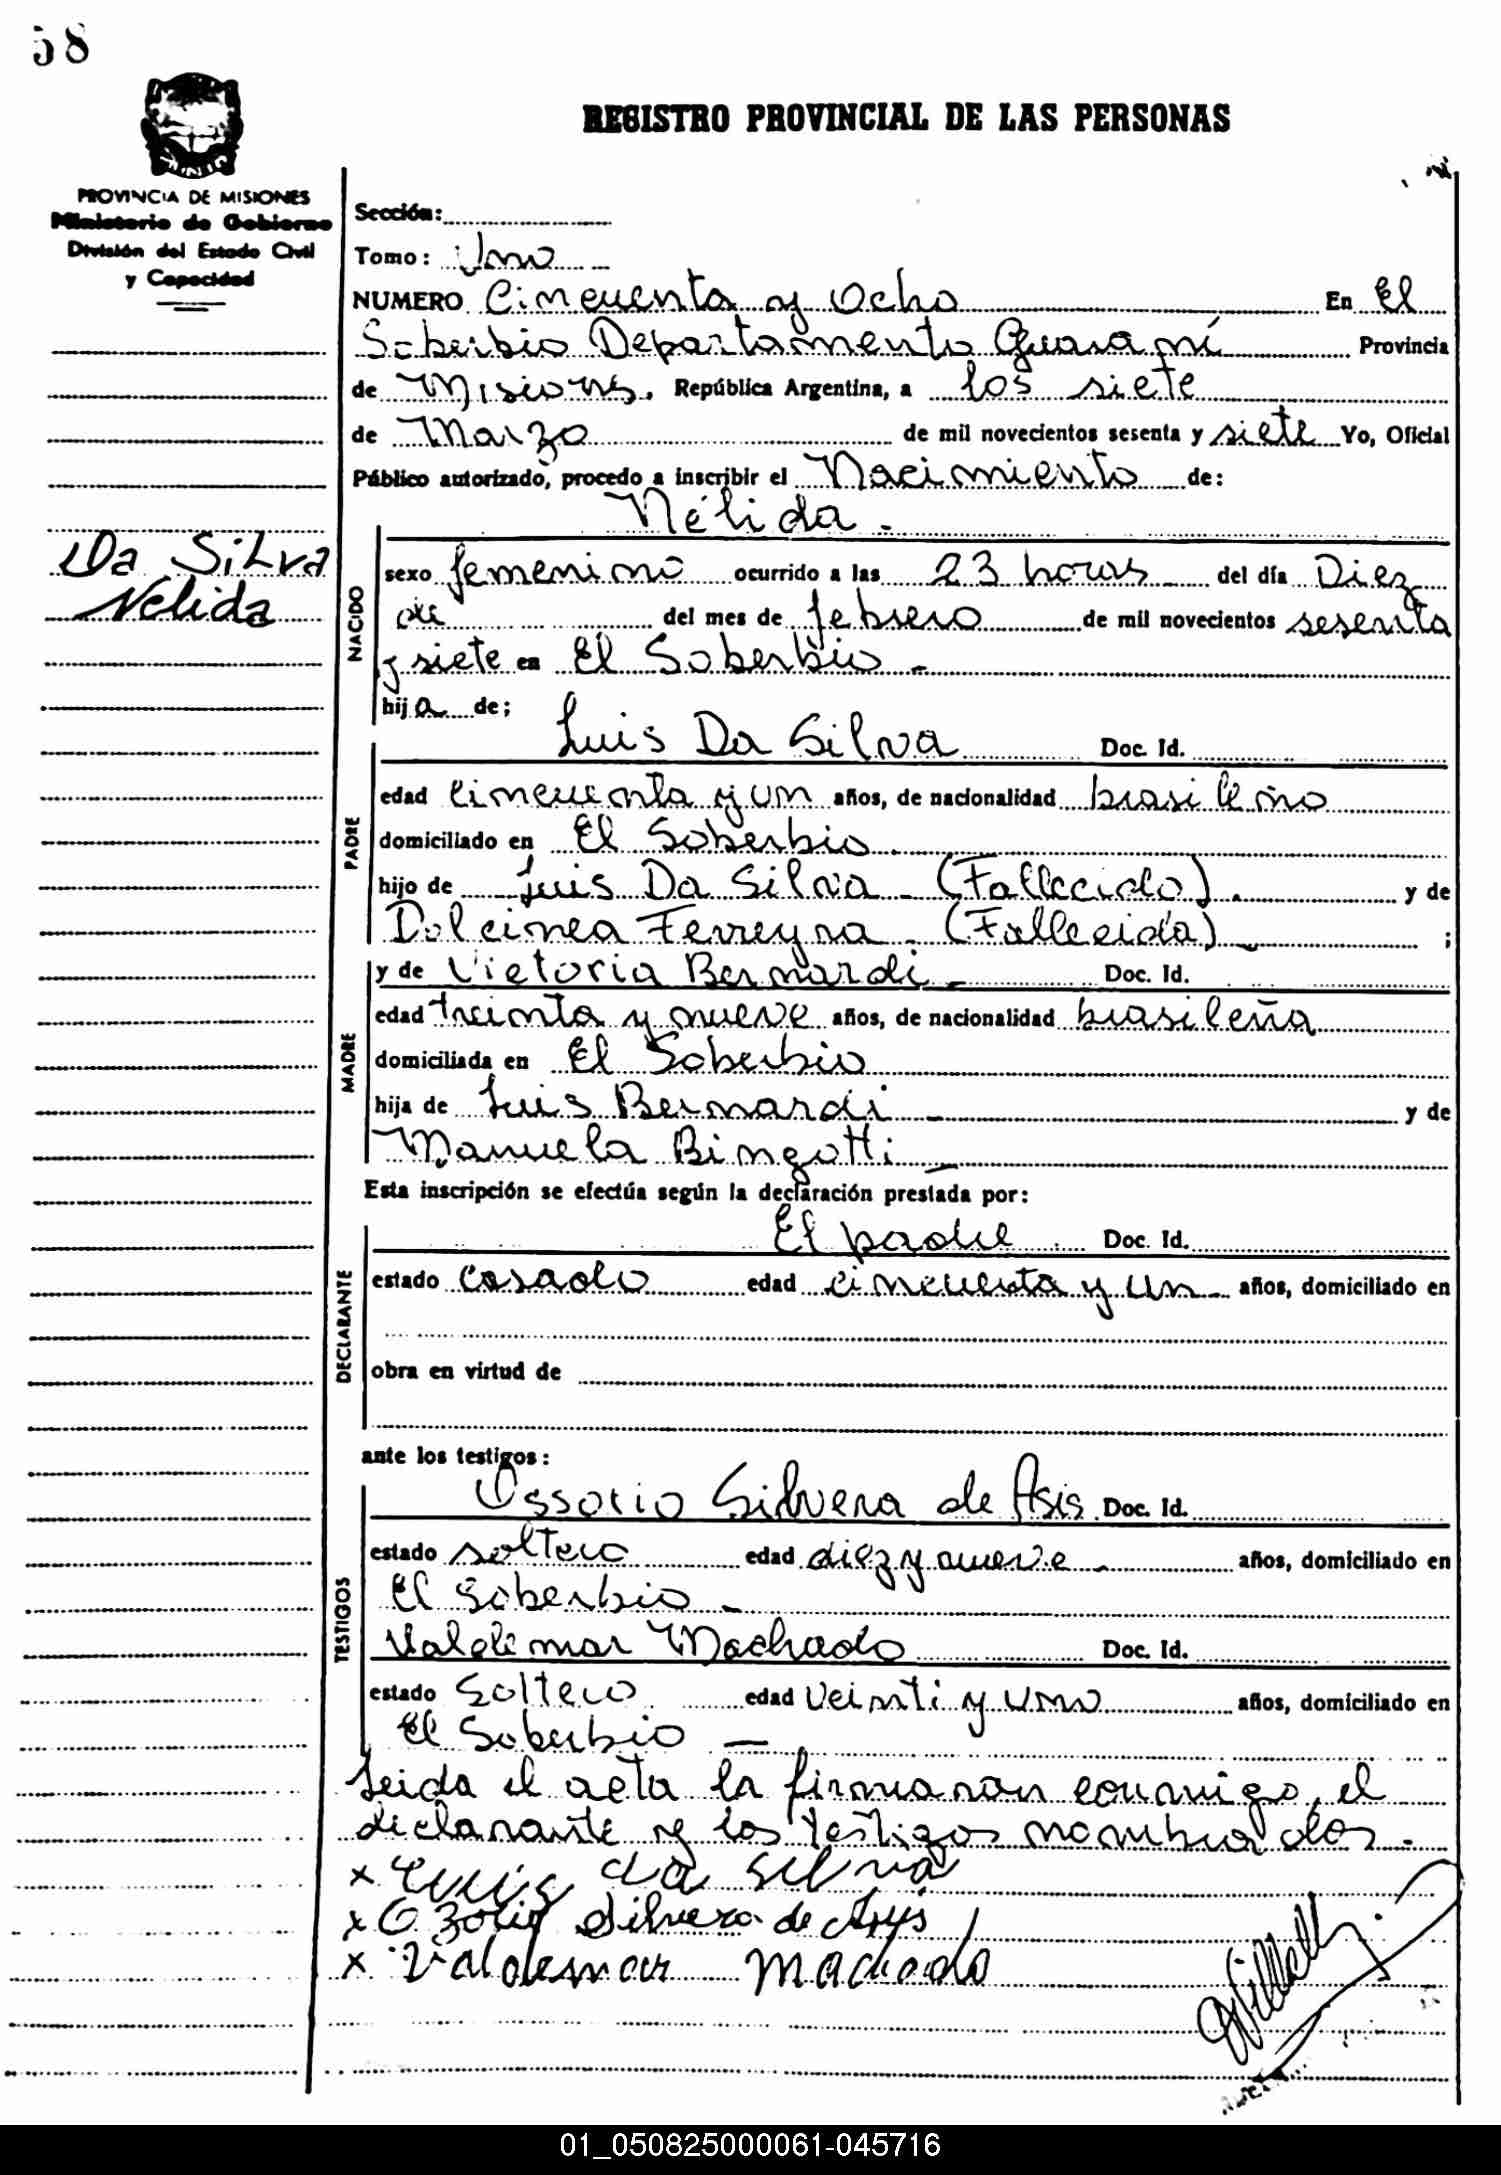 58
REGISTRO PROVINCIAL DE LAS PERSONAS
PROVINCIA DE MISIONES
Ministerio de Gobierno
División del Estado Civil
y Capacidad
Sección:
Tomo: Uno
NUMERO Cincuenta y Ocho En El
Soberbio Departamento Guaraní Provincia
de Misiones, República Argentina, a los siete
de Marzo de mil novecientos sesenta y siete Yo, Oficial
Público autorizado, procedo a inscribir el Nacimiento de:
Nélida.
Da Silva
Nelida
NACIDO
sexo femenino ocurrido a las 23 horas del día Diez
de del mes de febrero de mil novecientos sesenta
y siete en El Soberbio.-
hija de;
PADRE
Luis Da Silva Doc. Id.
edad cincuenta y un años, de nacionalidad brasileño
domiciliado en El Soberbio.
hijo de Luis Da Silva - (Fallecido). y de
Dolcinea Ferreyra - (Fallecida) - ;
MADRE
y de Victoria Bernardi - Doc. Id.
edad treinta y nueve años, de nacionalidad brasileña
domiciliada en El Soberbio
hija de Luis Bernardi - y de
Manuela Bingotti -
Esta inscripción se efectúa según la declaración prestada por:
DECLARANTE
El padre Doc. Id.
estado casado edad cincuenta y un años, domiciliado en
obra en virtud de
ante los testigos:
TESTIGOS
Ossorio Silvera de Asis Doc. Id.
estado soltero edad diez y nueve - años, domiciliado en
El Soberbio -
Valdemar Machado Doc. Id.
estado Soltero edad Veinti y uno años, domiciliado en
El Soberbio -
Leida el acta la firmaran conmigo, el
declarante y los testigos nombrados.
x Luis da silva
x Ozorio Silvera de Asys
x Valdemar machado
01_050825000061-045716